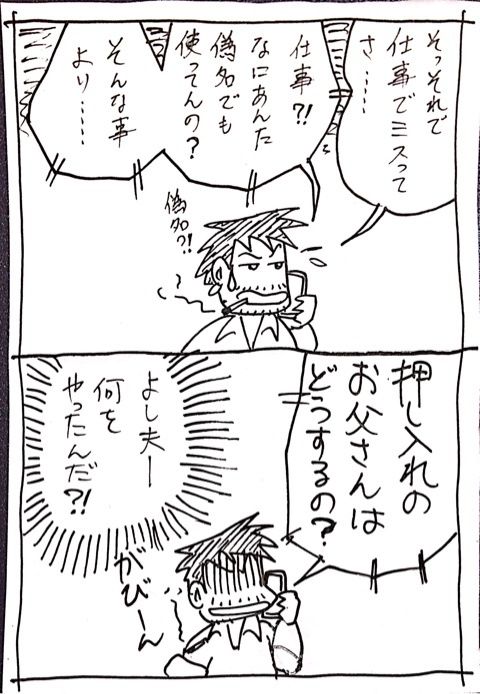 そっそれで
仕事でミスって
さ……
仕事?!
なにあんた
偽名でも
使ってんの?
そんな事
より……
偽名?!
押し入れの
お父さんは
どうするの?
よし夫ー
何を
やったんだ?!
がびーん